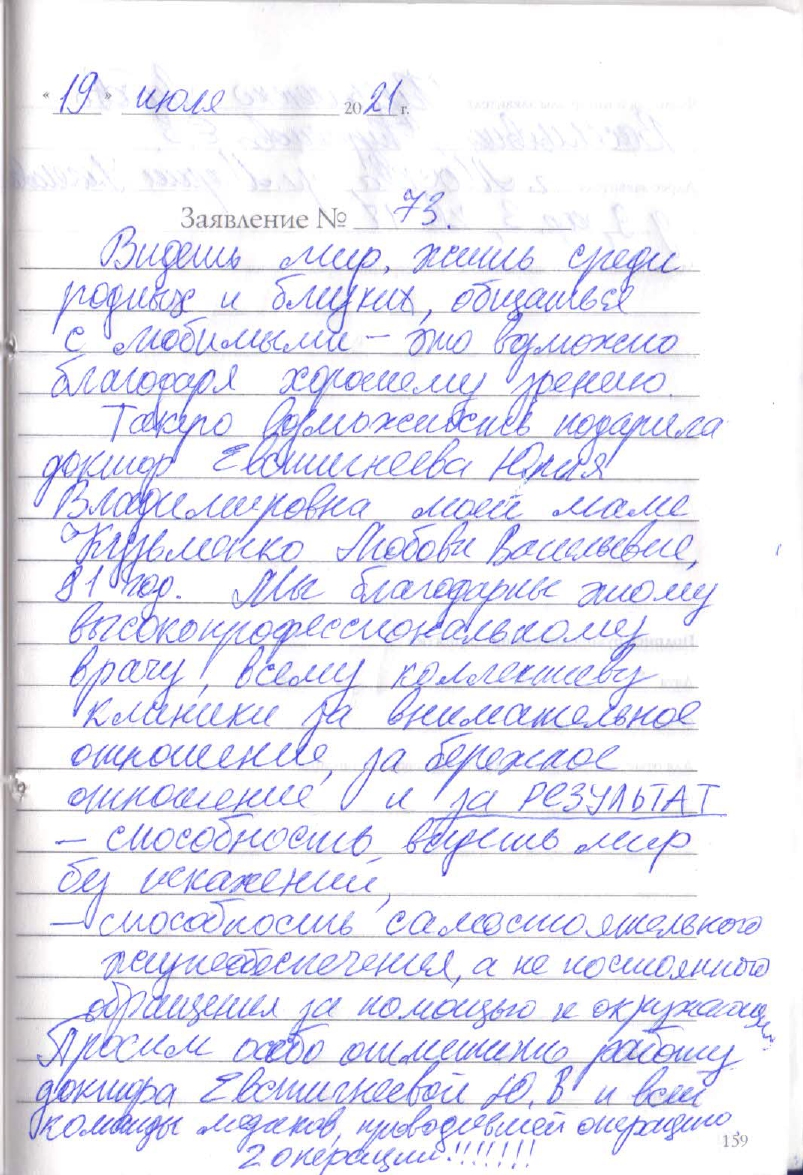 "19" июля 2021 г.
Заявление № 73.
Видеть мир, жить среди
родных и близких, общаться
с любимыми – это возможно
благодаря хорошему зрению.
Такую возможность подарила
доктор Евстигнеева Юлия
Владимировна моей маме
Кузьменко Любови Васильевне,
81 год. Мы благодарны этому
высокопрофессиональному
врачу, всему коллективу
клиники за внимательное
отношение, за бережное
отношение и за РЕЗУЛЬТАТ
– способность видеть мир
без искажений,
– способность самостоятельного
жизнеобеспечения, а не постоянного
обращения за помощью к окружающим.
Просим особо отметить работу
доктора Евстигнеевой Ю.В и всей
команды медиков, проводившей операцию,
2 операции!!!!!!!
159